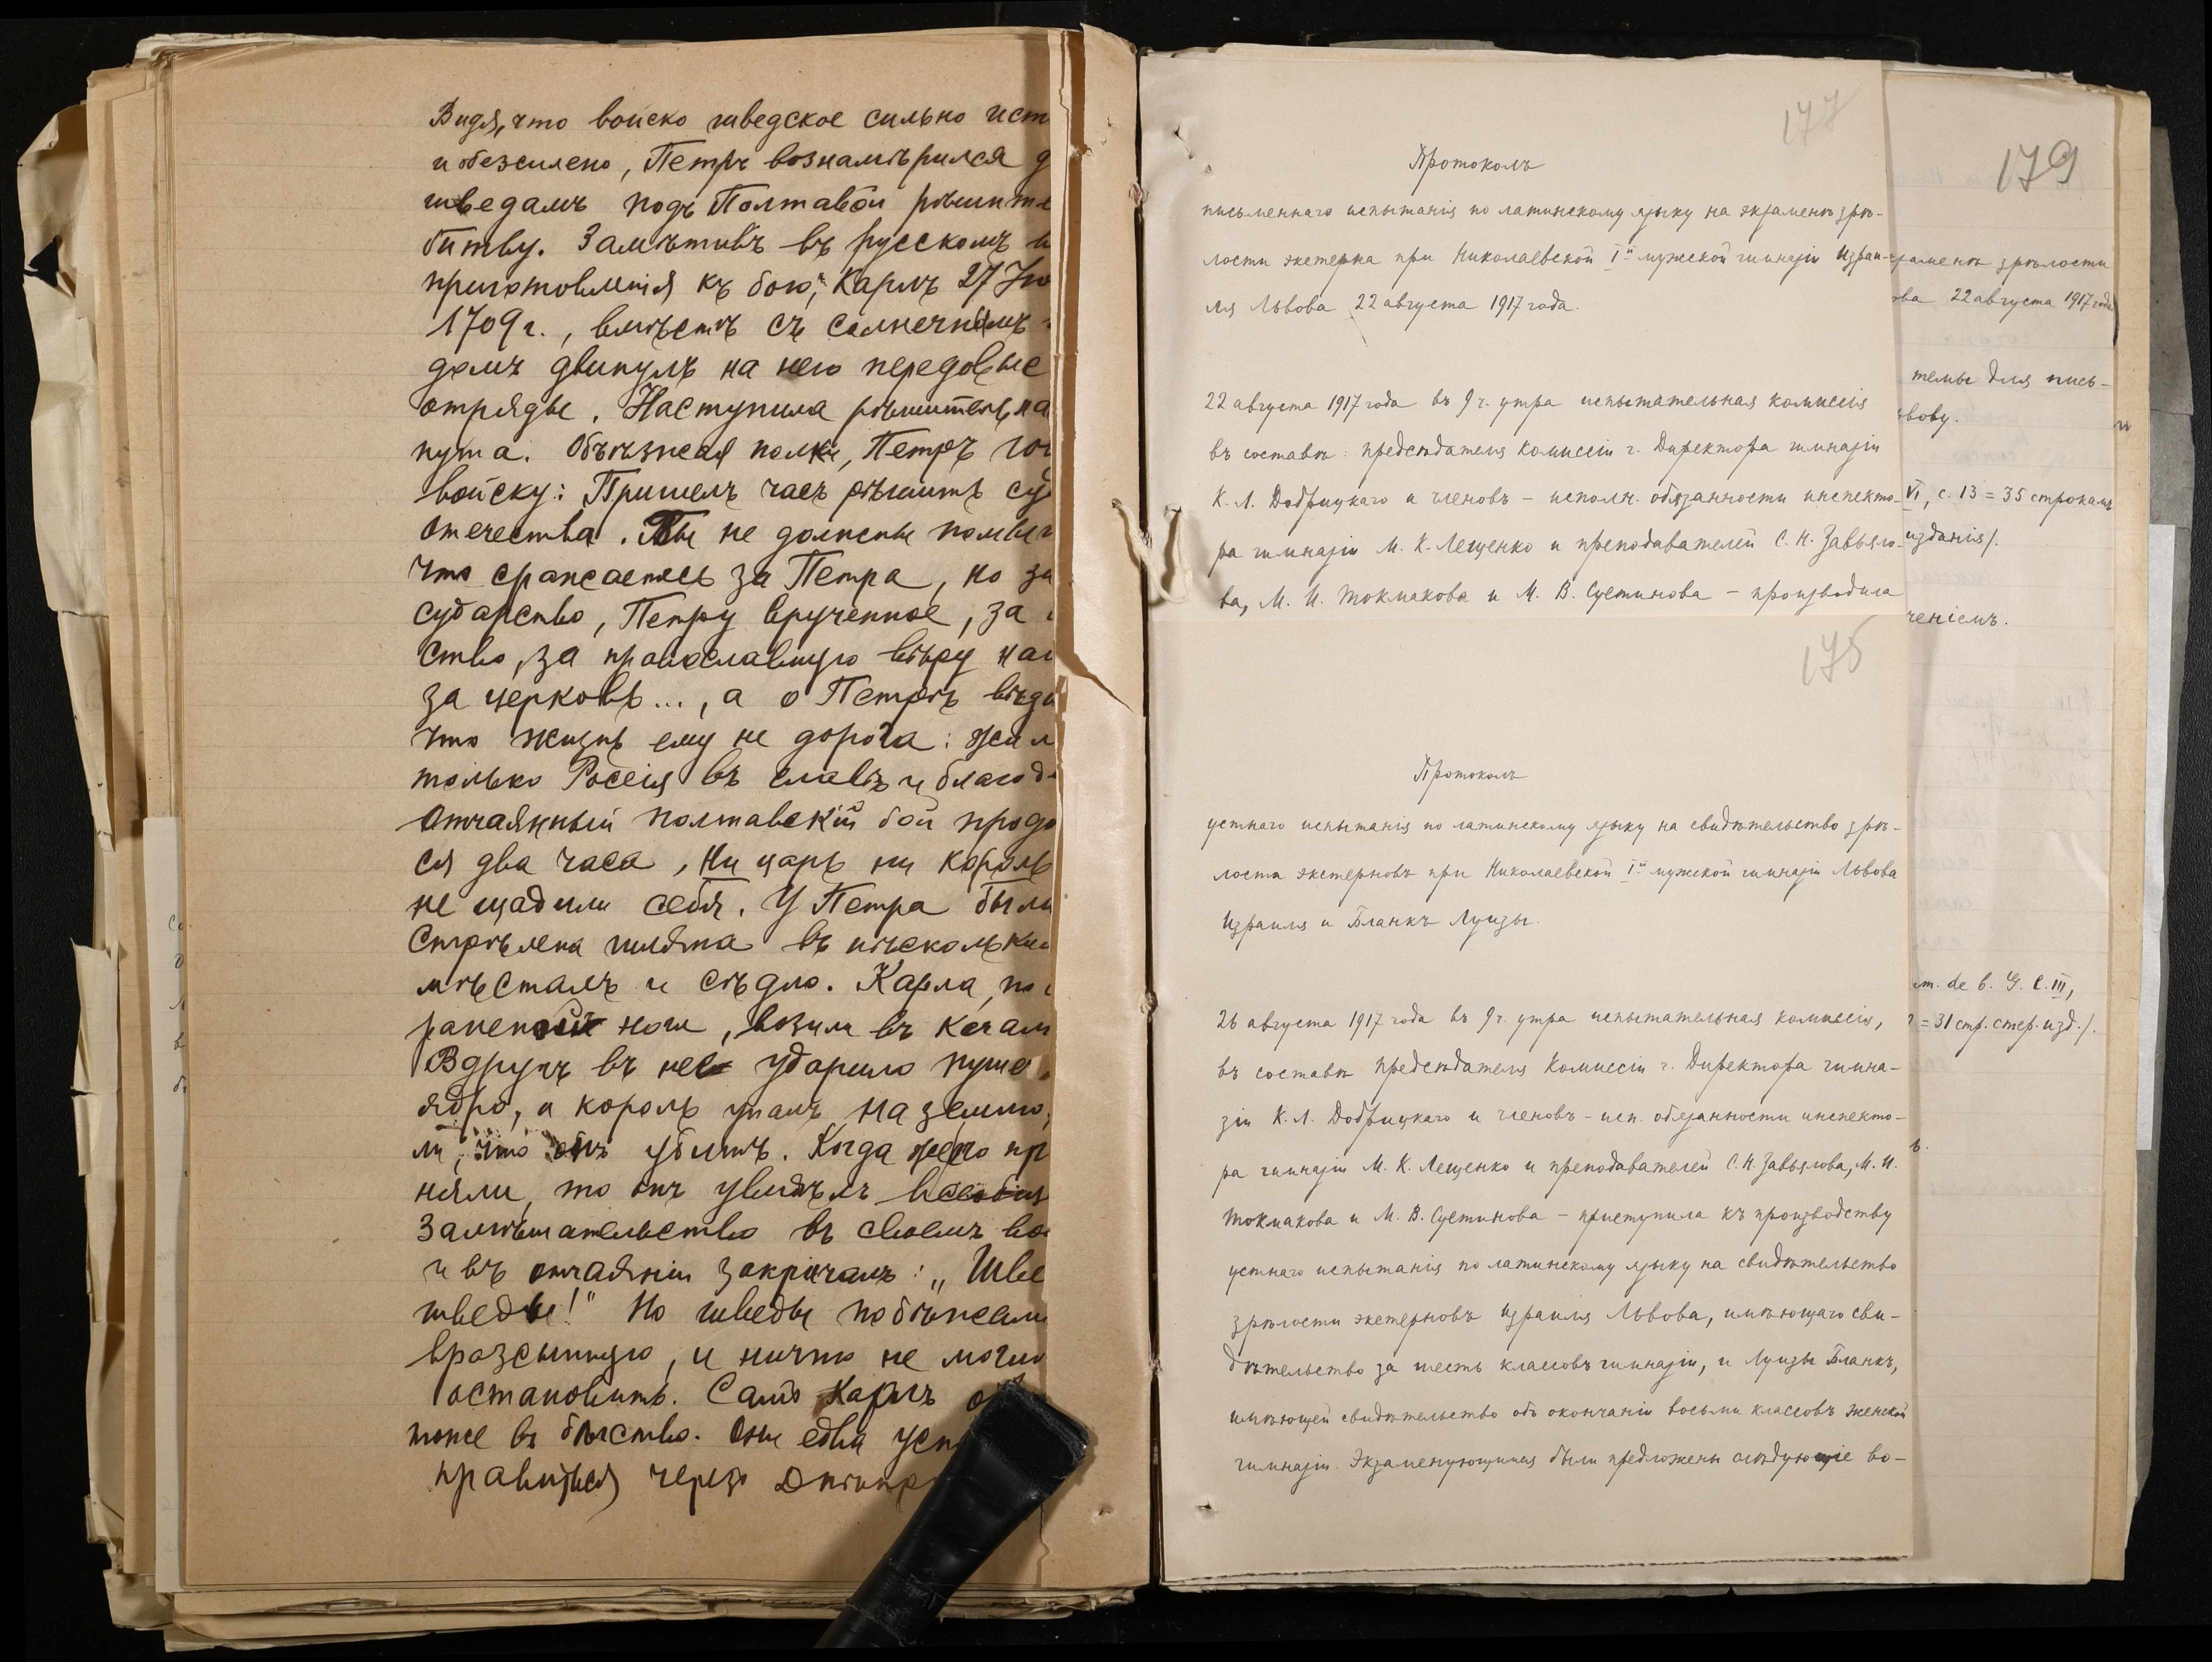 Видя, что войско шведское сильно ист
и обезсилено, Петръ вознамѣрился д
шведамъ подъ Полтавой рѣшите
битву. Замѣтивъ въ русскомъ
приготовленія къ бою, Карлъ 27 Ію
1709 г., вмѣстѣ съ солнечнымъ
домъ двинулъ на него передовые
отряды. Наступила рѣшительна
нута. Объѣзжая полки, Петръ гов
войску: Пришелъ часъ рѣшить суд
отечества. Вы не должны помыш
что сражаетесь за Петра, но за
сударство, Петру врученное, за
ство, за православную вѣру наш
за церковь..., а о Петрѣ вѣда
что жизнь ему не дорога: жила
только Россія въ славѣ и благод
Отчаянный полтавскій бой продо
ся два часа, Ни царь ни король
не щадили себя. У Петра были
стрѣлена шляпа въ нѣсколькихъ
мѣстахъ и сѣдло. Карла, по
раненой ноги, возили въ качалк
Вдругъ въ нее ударило пуше
ядро, и король упалъ на землю,
ли, что онъ убитъ. Когда же его пр
няли, то онъ увидѣлъ всеобщ
замѣшательство въ своемъ вой
и въ отчаяніи закричалъ: „Шве
шведы!" Но шведы побѣжали
вразсыпную, и ничто не могло
остановить. Самъ Карлъ об
тоже въ бѣгство. Они едва усп
правиться черезъ Днѣпр
177
Протоколъ
письменнаго испытанія по латинскому языку на экзаменѣ зрѣ-
лости экстерна при Николаевской I-й мужской гимназіи Израи-
ля Львова 22 августа 1917 года.
22 августа 1917 года въ 9 ч. утра испытательная комиссія
въ составѣ: предсѣдателя Комиссіи г. Директора гимназіи
К. Л. Добрицкаго и членовъ – исполн. обязанности инспекто-
ра гимназіи М. К. Лещенко и преподавателей С. Н. Завьяло-
ва, М. И. Токмакова и М. В. Сустинова – производила
175
Протоколъ
устнаго испытанія по латинскому языку на свидѣтельство зрѣ-
лости экстерновъ при Николаевской I-й мужской гимназіи Львова
Израиля и Бланкъ Луизы.
26 августа 1917 года въ 9 ч. утра испытательная комиссія,
въ составѣ предсѣдателя Комиссіи г. Директора гимна-
зіи К. Л. Добрицкаго и членовъ – исп. обязанности инспекто-
ра гимназіи М. К. Лещенко и преподавателей С. Н. Завьялова, М. И.
Токмакова и М. В. Сустинова – приступила къ производству
устнаго испытанія по латинскому языку на свидѣтельство
зрѣлости экстерновъ Израиля Львова, имѣющаго сви-
дѣтельство за шесть классовъ гимназіи, и Луизы Бланкъ,
имѣющей свидѣтельство объ окончаніи восьми классовъ женской
гимназіи. Экзаменующимся были предложены слѣдующіе во-
179
заменѣ зрѣлости
ова 22 августа 1917 года
темы для пись-
вову.
VI, с. 13 = 35 строкамъ
изданія/.
ченіемъ.
m. de b. G. C. III,
= 31 стр. стер. изд./.
ъ.